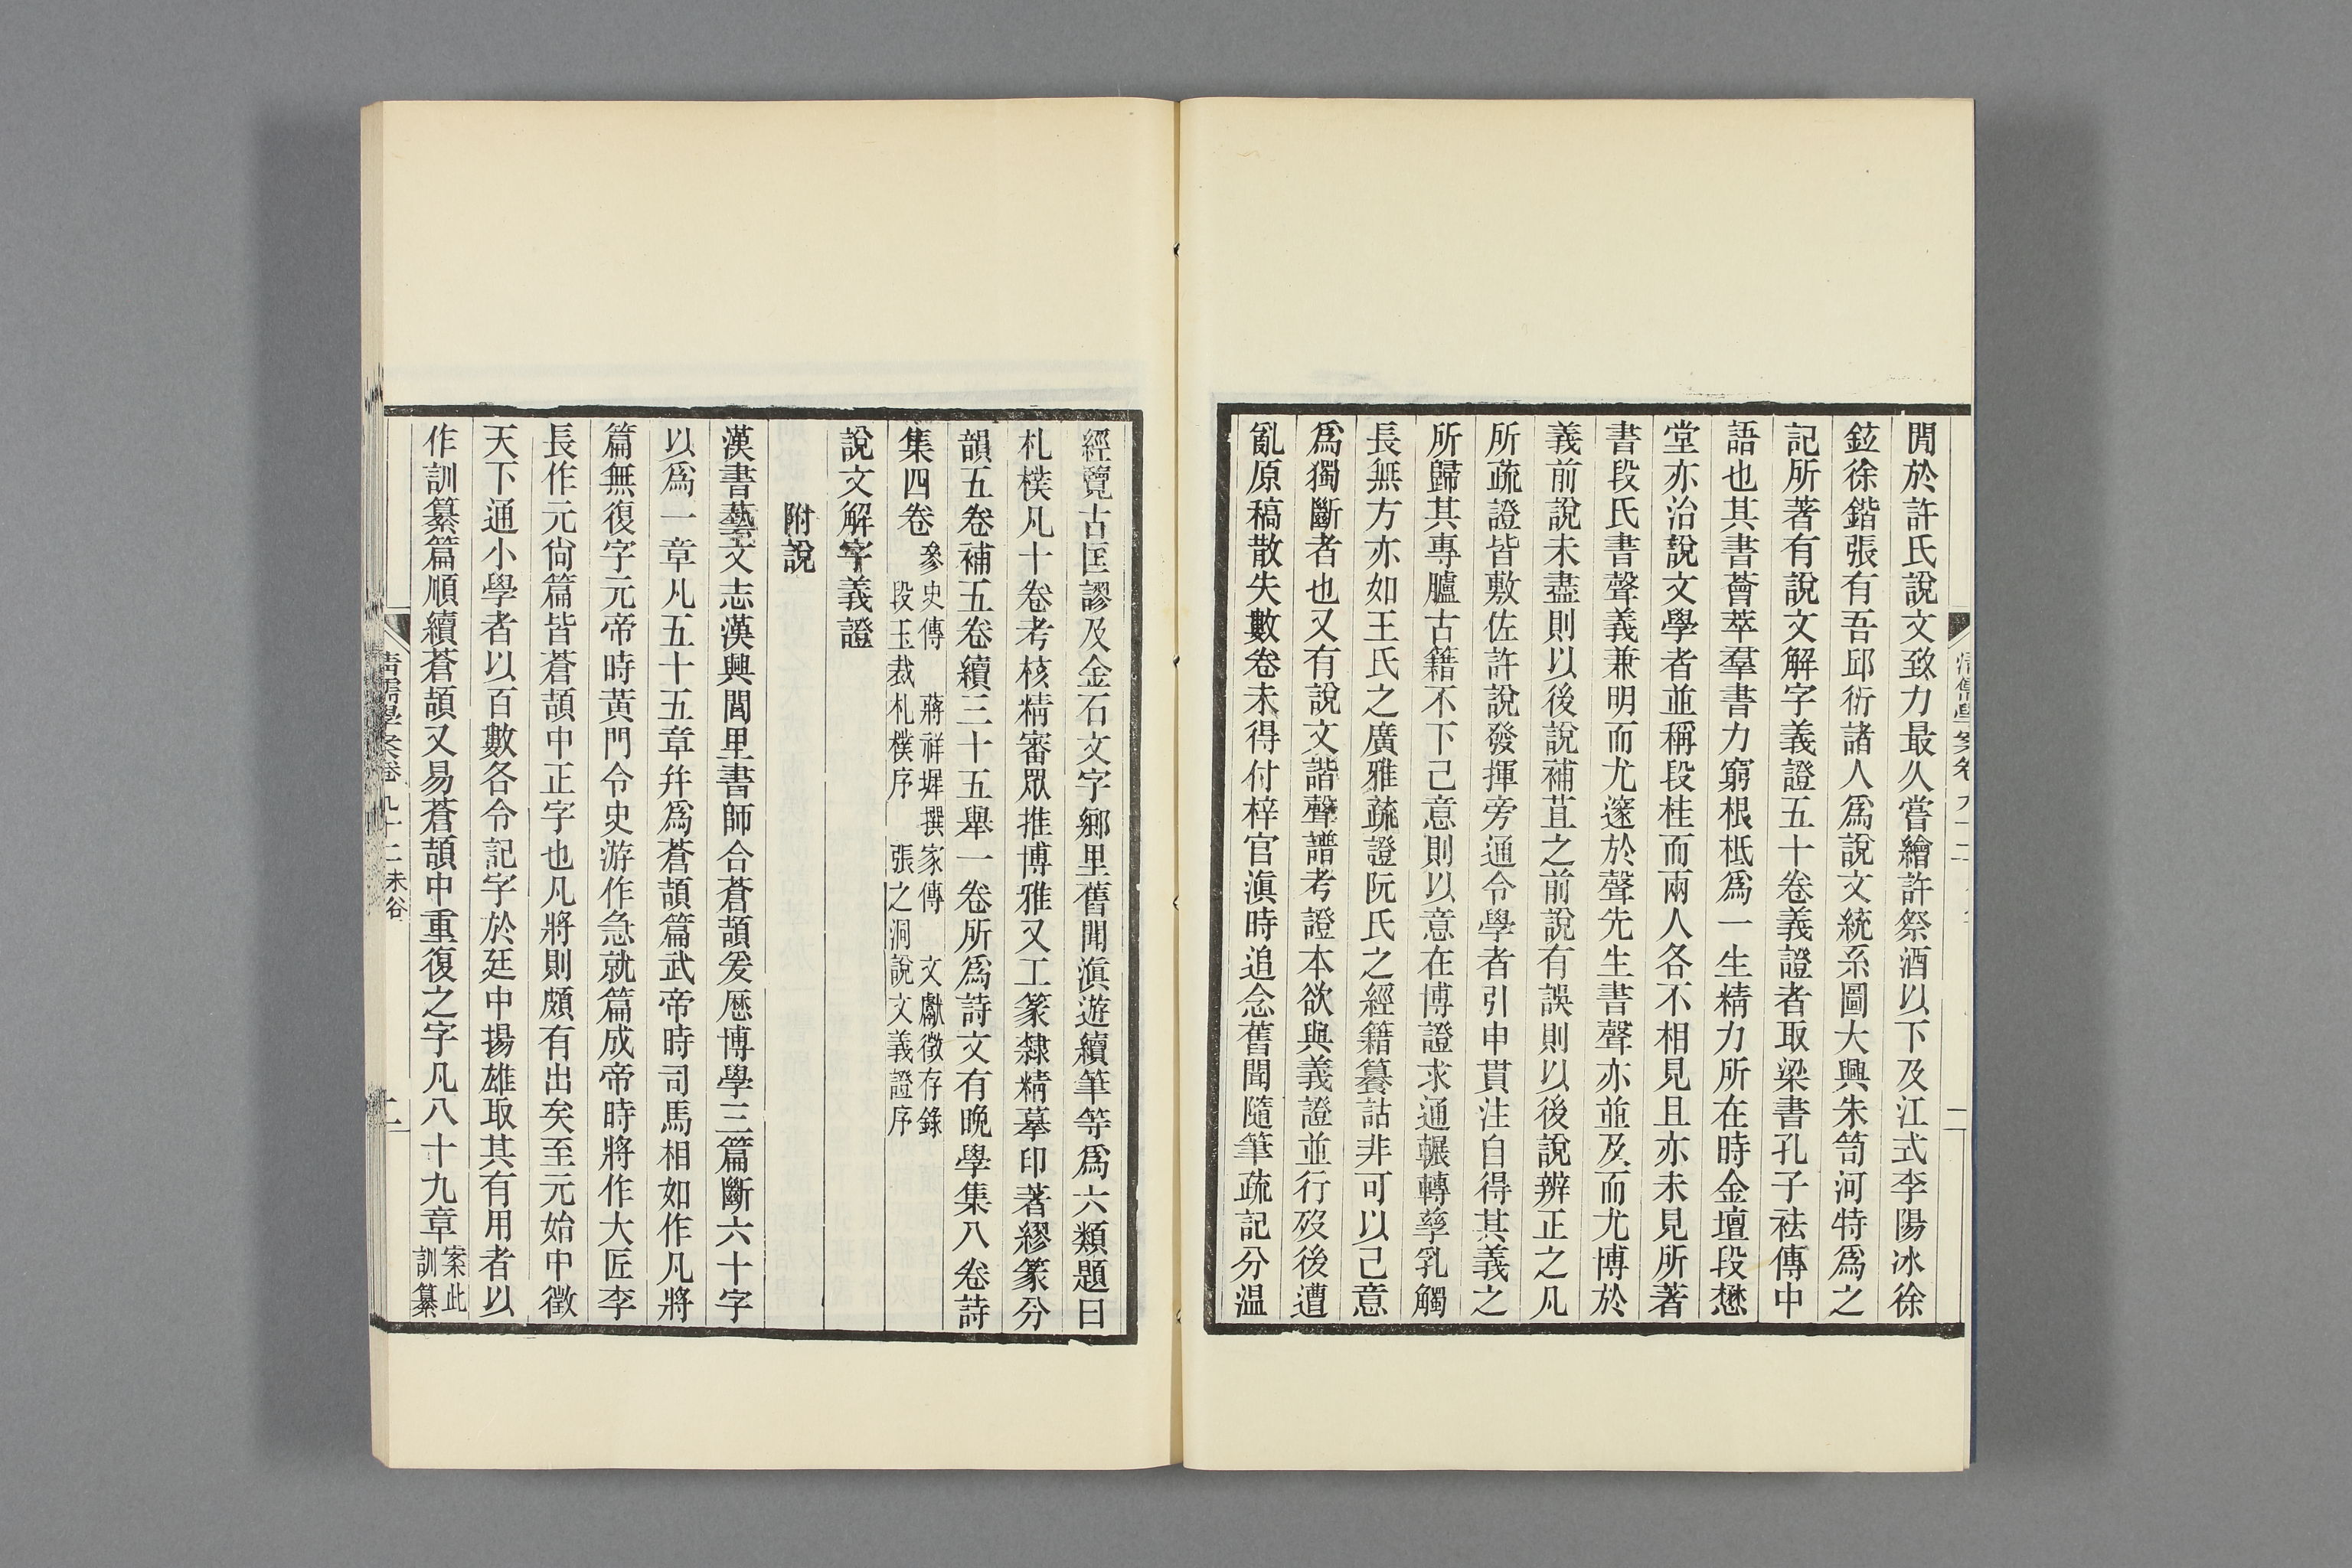 閒於許氏說文致力最久嘗繪許祭酒以下及江式李陽冰徐
鉉徐鍇張有吾邱衍諸人爲說文統系圖大興朱笥河特爲之
記所著有說文解字義證五十卷義證者取梁書孔子袪傳中
語也其書薈萃羣書力窮根柢爲一生精力所在時金壇段懋
堂亦治說文學者並稱段桂而兩人各不相見且亦未見所著
書段氏書聲義兼明而尤邃於聲先生書聲亦並及而尤博於
義前說未盡則以後說補苴之前說有誤則以後說辨正之凡
所疏證皆敷佐許說發揮旁通令學者引申貫注自得其義之
所歸其專臚古籍不下己意則以意在博證求通輾轉孳乳觸
長無方亦如王氏之廣雅疏證阮氏之經籍籑詁非可以己意
爲獨斷者也又有說文諧聲譜考證本欲與義證並行歿後遭
亂原稿散失數卷未得付梓官滇時追念舊聞隨筆疏記分溫
經覽古匡謬及金石文字鄉里舊聞滇遊續筆等爲六類題曰
札樸凡十卷考核精審眾推博雅又工篆隸精摹印著繆篆分
韻五卷補五卷續三十五舉一卷所爲詩文有晚學集八卷詩
集四卷 參史傳 蔣祥墀撰家傳 文獻徵存錄
段玉裁札樸序 張之洞說文義證序
說文解字義證
附說
漢書藝文志漢興閭里書師合蒼頡爰歷博學三篇斷六十字
以爲一章凡五十五章幷爲蒼頡篇武帝時司馬相如作凡將
篇無復字元帝時黃門令史游作急就篇成帝時將作大匠李
長作元尙篇皆蒼頡中正字也凡將則頗有出矣至元始中徵
天下通小學者以百數各令記字於廷中揚雄取其有用者以
作訓纂篇順續蒼頡又易蒼頡中重復之字凡八十九章 案此
訓纂
清儒學案卷九十二未谷
二